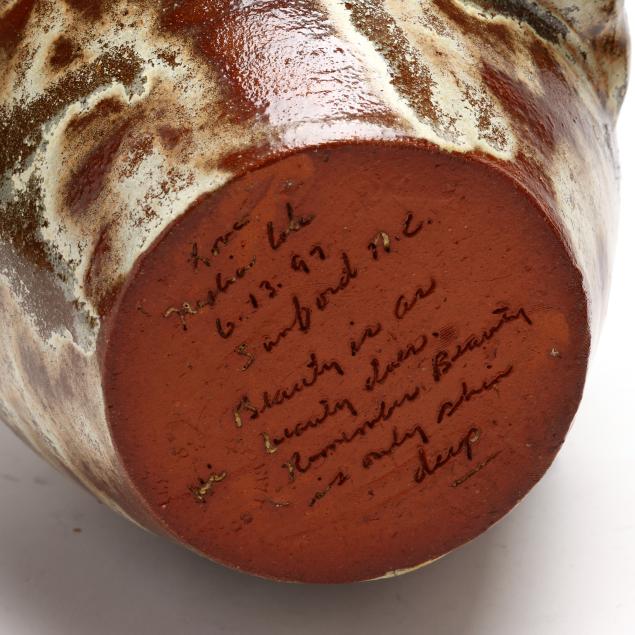 Love
Neolia Cole
6.13.97
Sanford N.C.
Beauty is as
beauty does.
Remember Beauty
is only skin
deep.